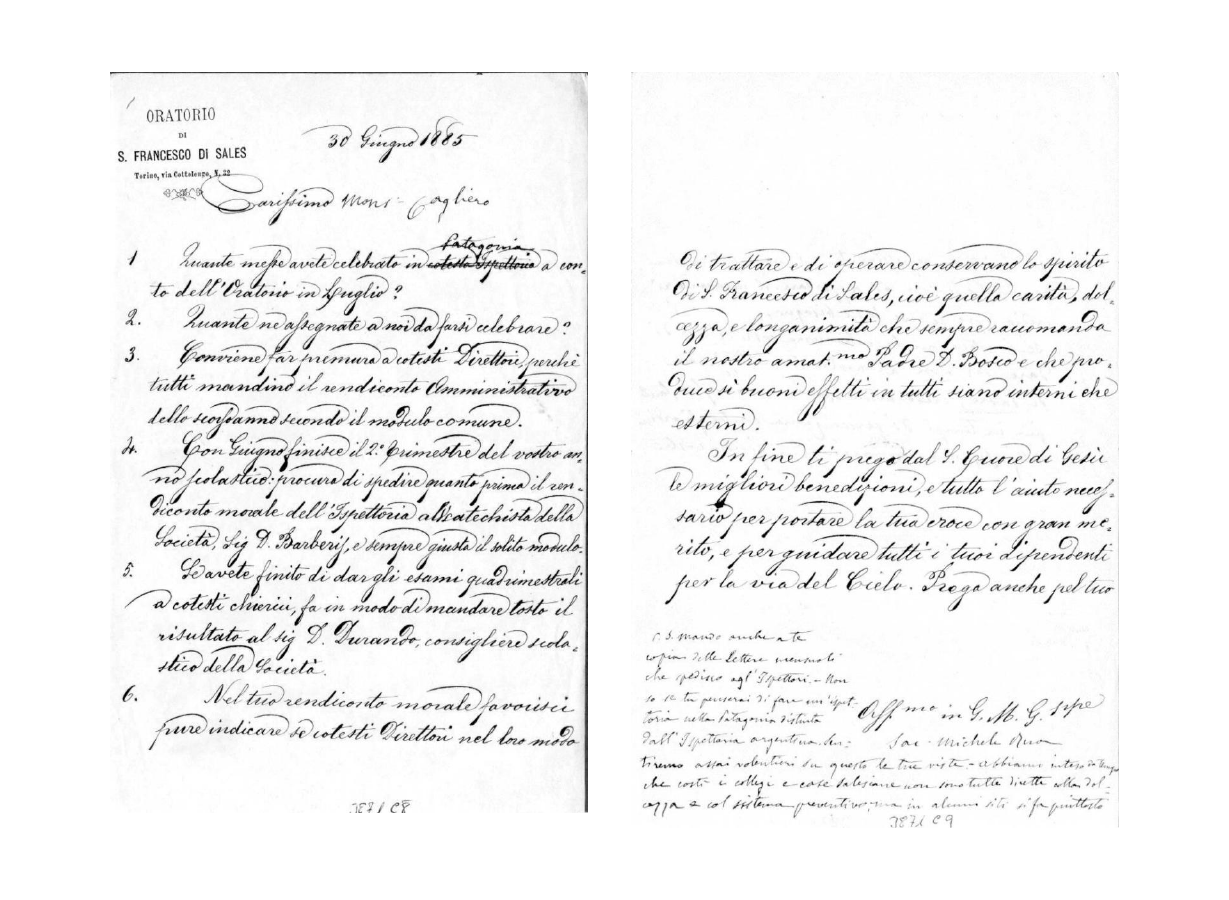 ORATORIO
DI
S. FRANCESCO DI SALES
Torino, via Cottolengo, N. 32
30 Giugno 1885
Carissimo Mons. Cagliero
Patagonia
1 Quante messe avete celebrato in cotesta Ispettoria a con-
to dell'Oratorio in Luglio?
2. Quante ne assegnate a noi da farsi celebrare?
3. Conviene far premura a cotesti Direttori, perchè
tutti mandino il rendiconto Amministrativo
dello scorso anno secondo il modulo comune.
4. Con Giugno finisce il 2° Trimestre del vostro an-
no scolastico: procura di spedire quanto prima il ren-
diconto morale dell'Ispettoria al Catechista della
Società, Sig D. Barberis, e sempre giusta il solito modulo.
5. Se avete finito di dar gli esami quadrimestrali
a cotesti chierici, fa in modo di mandare tosto il
risultato al sig D. Durando, consigliere scola-
stico della Società.
6. Nel tuo rendiconto morale favorisci
pure indicare se cotesti Direttori nel loro modo
3871 C8
di trattare e di operare conservano lo spirito
di S. Francesco di Sales, cioè quella carità, dol-
cezza, e longanimità che sempre raccomanda
il nostro amat.mo Padre D. Bosco e che pro-
duce sì buoni effetti in tutti siano interni che
esterni.
In fine ti prego dal S. Cuore di Gesù
le migliori benedizioni, e tutto l'aiuto neces-
sario per portare la tua croce con gran me-
rito, e per guidare tutti i tuoi dipendenti
per la via del Cielo. Prega anche pel tuo
Aff mo in G. M. G.sppe
Sac. Michele Rua
P. S. Mando anche a te
copia delle Lettere mensuali
che spedisco agl'Ispettori - Non
so se tu penserai di fare un'ispet-
toria nella Patagonia distinta
dall'Ispettoria argentina. Sen-
tiremo assai volentieri su questo le tue viste - abbiamo inteso
che costì i collegi e case salesiane non sono tutte dirette colla dol-
cezza e col sistema preventivo; ma in alcuni siti si fa piuttosto
3871 C9